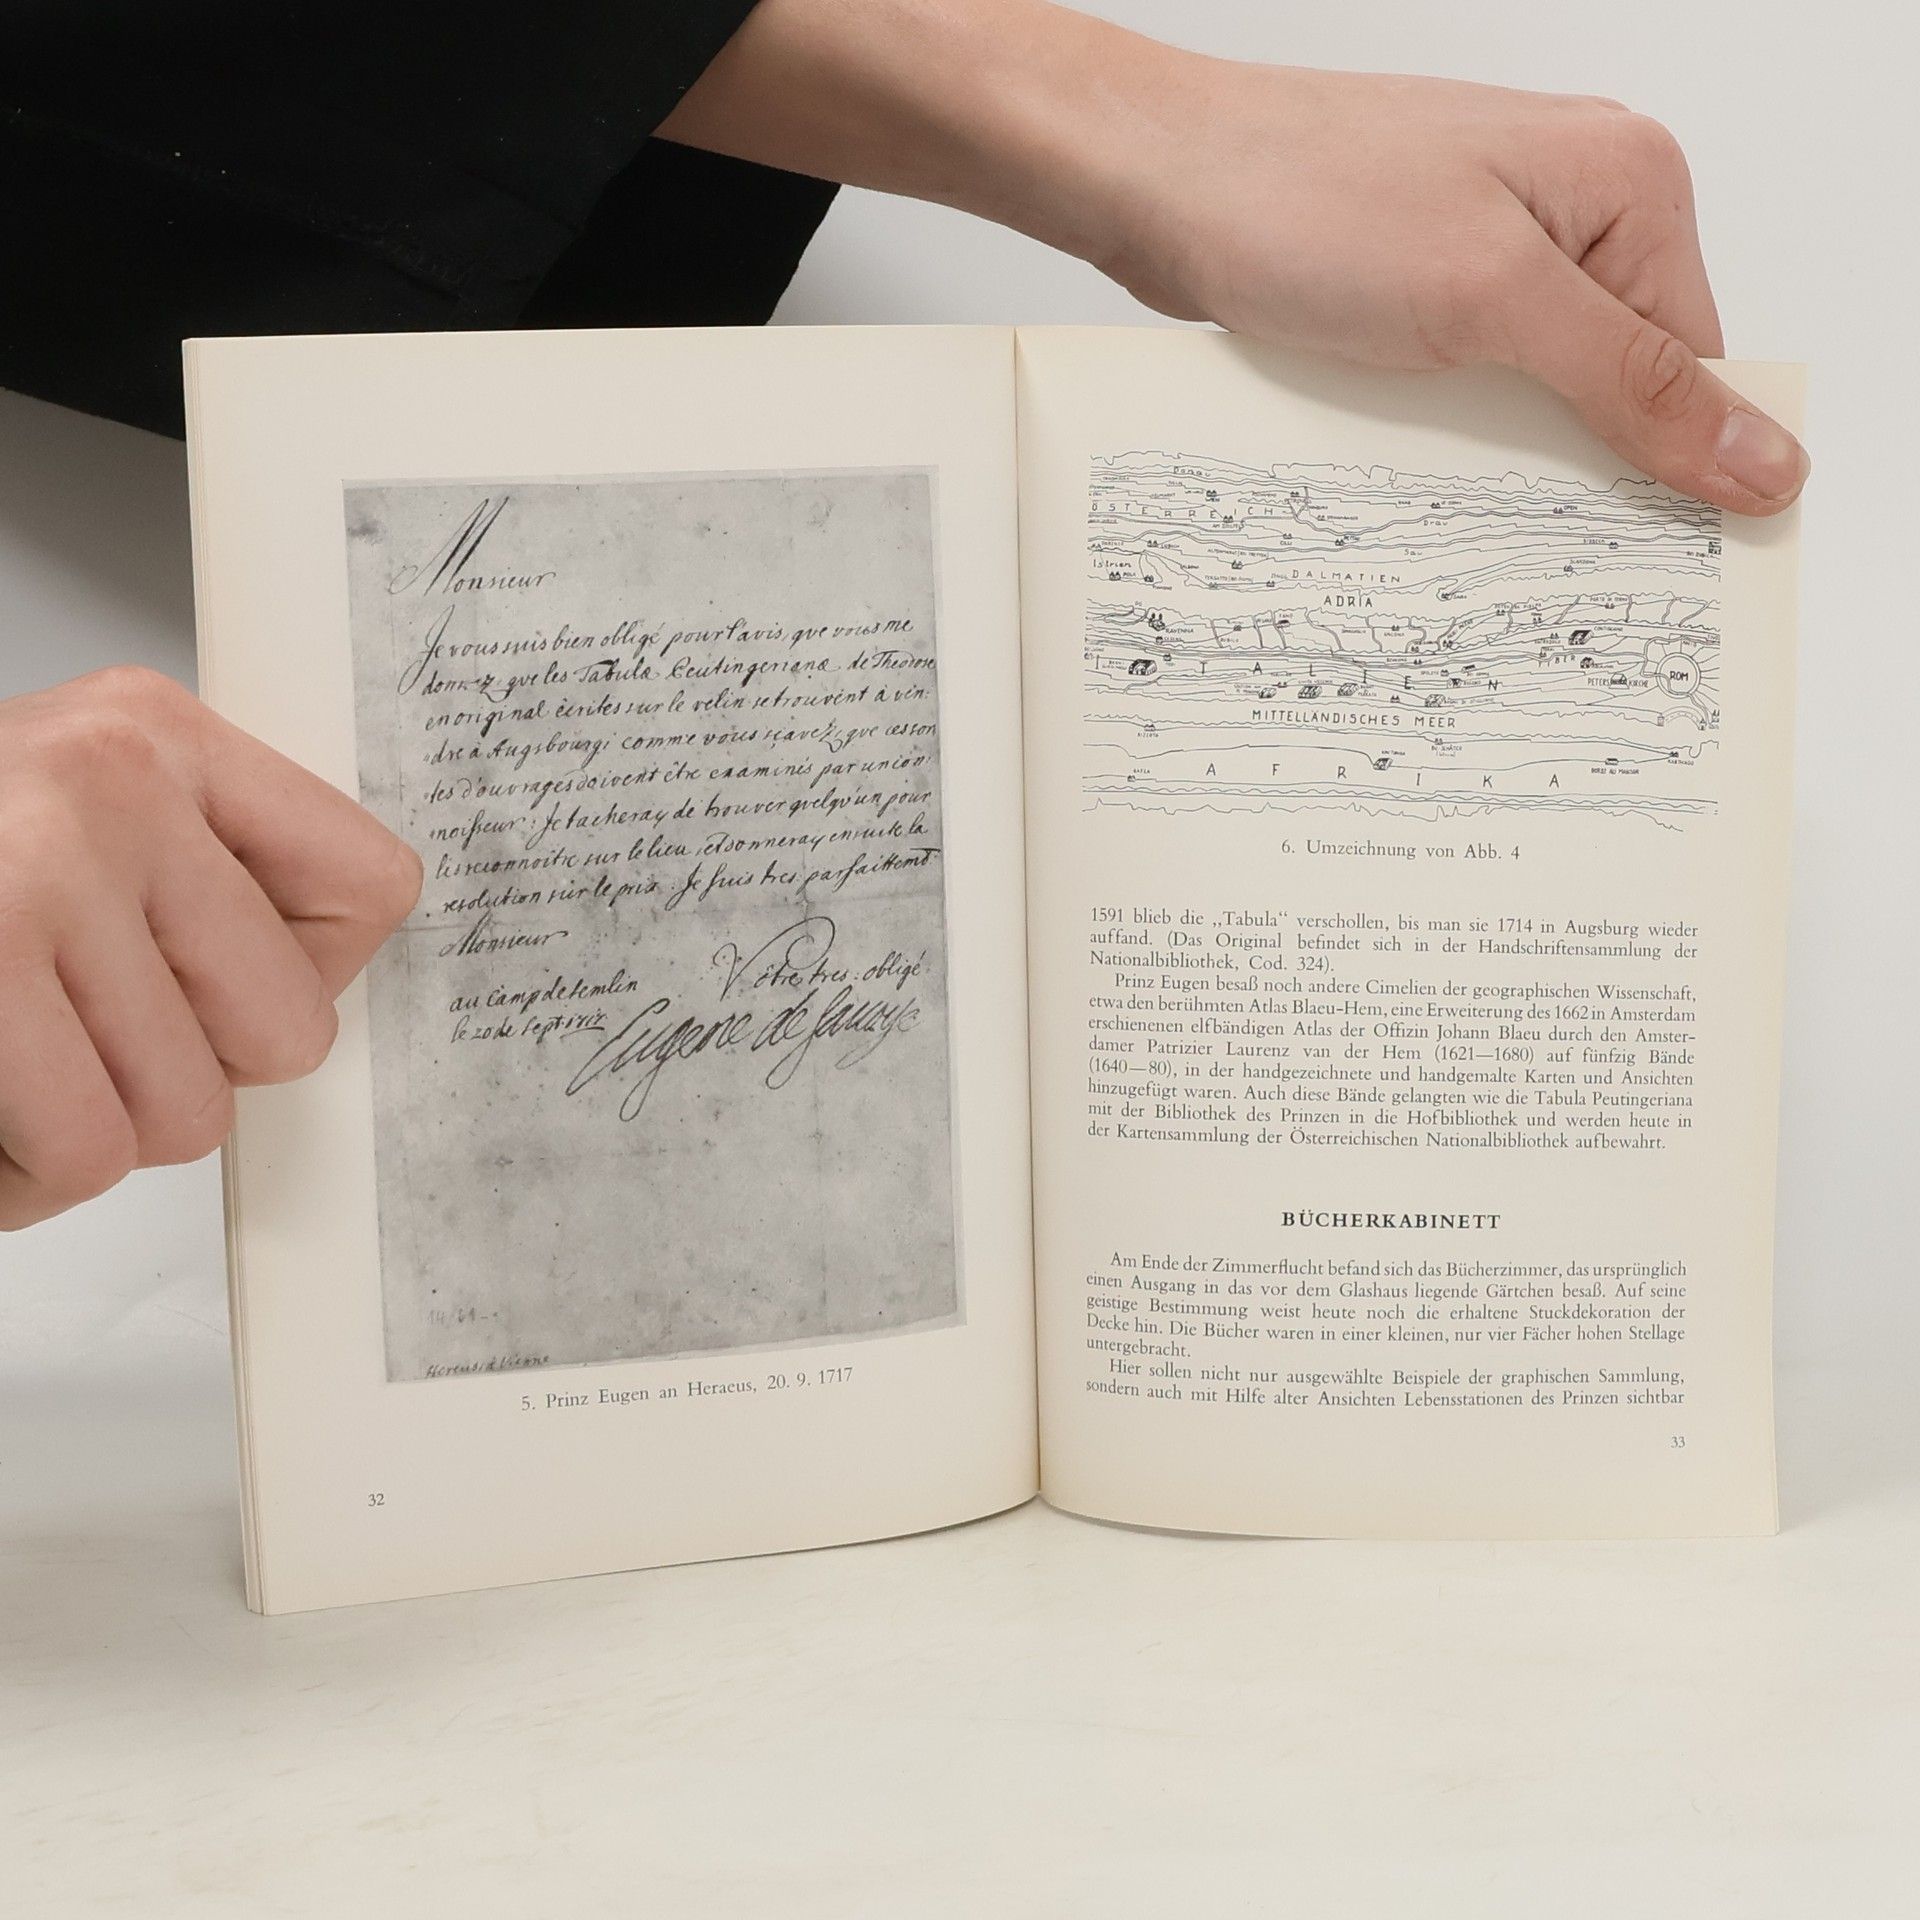 Monsieur
Je vous suis bien obligé pour l'avis, que vous me
donnez, que les Tabulæ Peutingerianæ de Theodose
en original écrites sur le velin se trouvent à ven:
dre à Augsbourg; comme vous sçavez, que ces sor
tes d'ouvrages doivent être examinés par un con:
noisseur: Je tacheray de trouver quelqu'un pour
les reconnoitre sur le lieu, et donneray ensuite la
resolution sur le prix. Je suis tres parfaittemt
Monsieur
Vôtre tres: obligé
au Camp de Semlin
le 20 de Sept: 1717
Eugene de Savoye
Hereus à Vienne
5. Prinz Eugen an Heraeus, 20. 9. 1717
32
Donau
ÖSTERREICH
Drau
Sau
Istrien
DALMATIEN
ADRIA
RAVENNA
ITALIEN
TIBER
PETERSKIRCHE
ROM
MITTELLÄNDISCHES MEER
AFRIKA
6. Umzeichnung von Abb. 4
1591 blieb die „Tabula“ verschollen, bis man sie 1714 in Augsburg wieder
auffand. (Das Original befindet sich in der Handschriftensammlung der
Nationalbibliothek, Cod. 324).
Prinz Eugen besaß noch andere Cimelien der geographischen Wissenschaft,
etwa den berühmten Atlas Blaeu-Hem, eine Erweiterung des 1662 in Amsterdam
erschienenen elfbändigen Atlas der Offizin Johann Blaeu durch den Amster-
damer Patrizier Laurenz van der Hem (1621—1680) auf fünfzig Bände
(1640—80), in der handgezeichnete und handgemalte Karten und Ansichten
hinzugefügt waren. Auch diese Bände gelangten wie die Tabula Peutingeriana
mit der Bibliothek des Prinzen in die Hofbibliothek und werden heute in
der Kartensammlung der Österreichischen Nationalbibliothek aufbewahrt.
BÜCHERKABINETT
Am Ende der Zimmerflucht befand sich das Bücherzimmer, das ursprünglich
einen Ausgang in das vor dem Glashaus liegende Gärtchen besaß. Auf seine
geistige Bestimmung weist heute noch die erhaltene Stuckdekoration der
Decke hin. Die Bücher waren in einer kleinen, nur vier Fächer hohen Stellage
untergebracht.
Hier sollen nicht nur ausgewählte Beispiele der graphischen Sammlung,
sondern auch mit Hilfe alter Ansichten Lebensstationen des Prinzen sichtbar
33